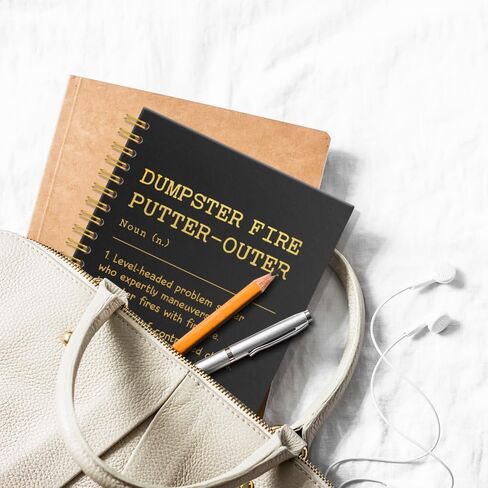 DUMPSTER FIRE
PUTTER-OUTER
Noun (n.)
1. Level-headed problem
who expertly maneuvers
fires with
of